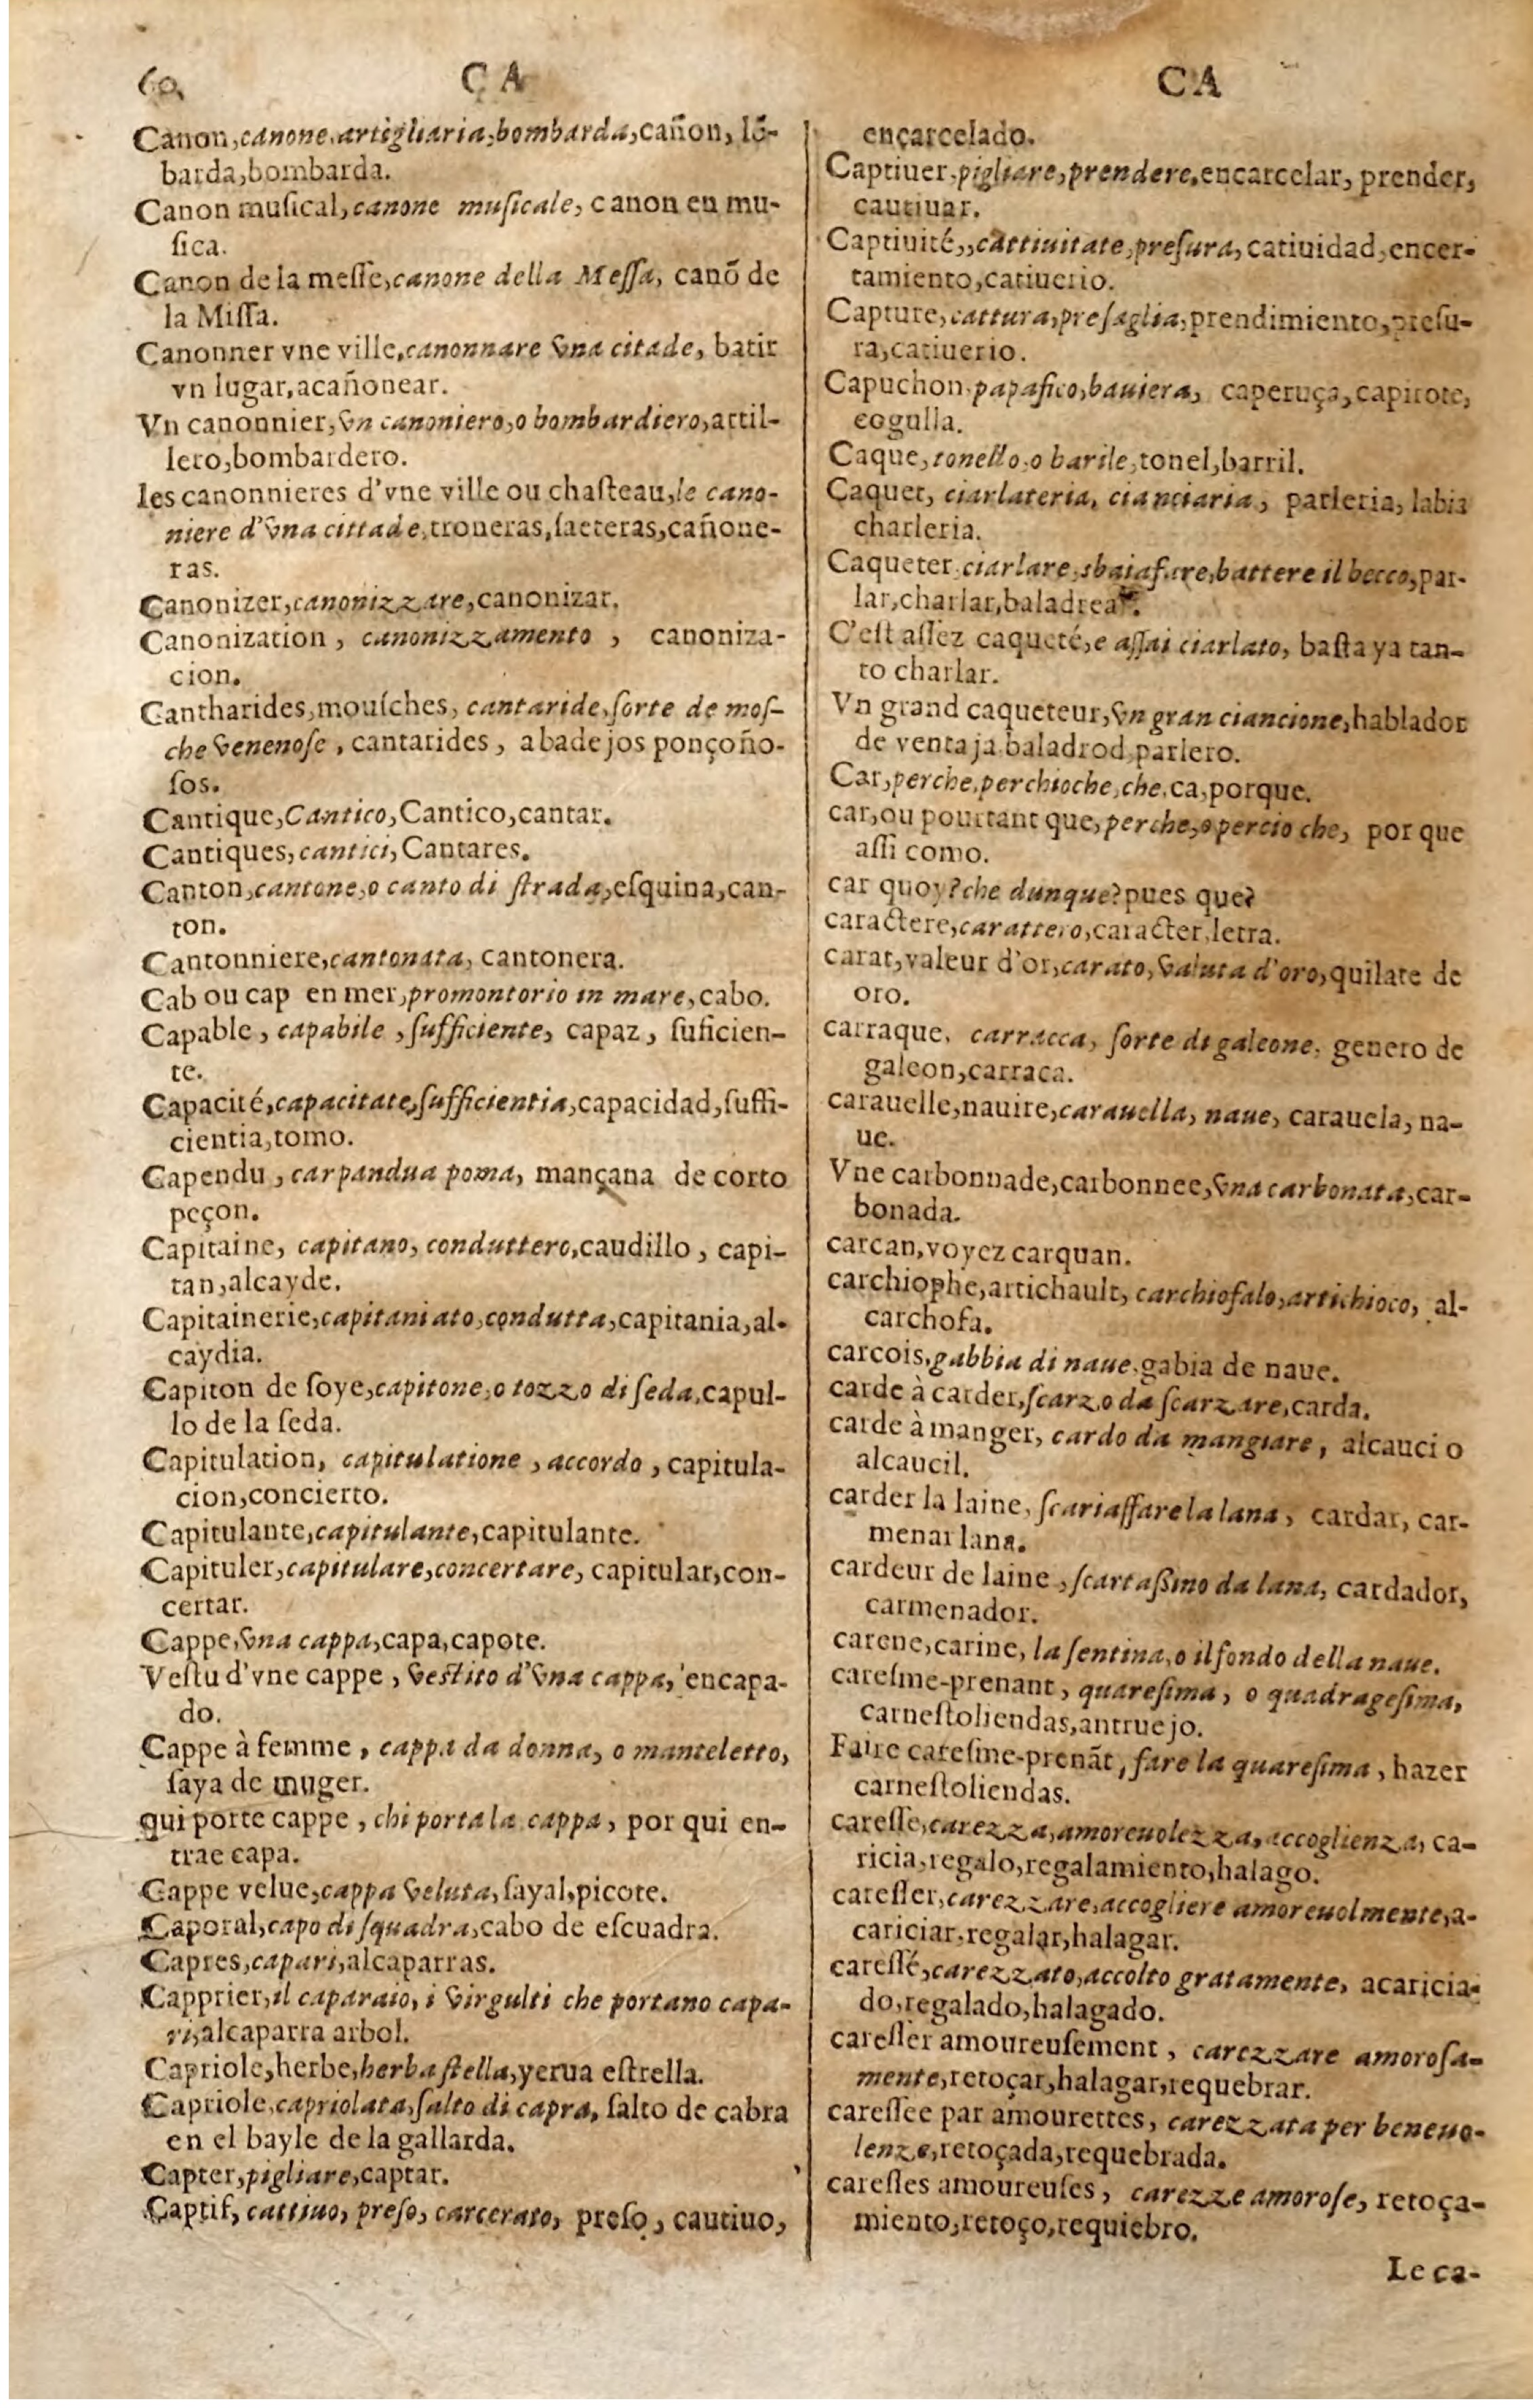 60 CA
Canon, canone, artigliaria, bombarda, cañon, lõ-
barda, bombarda.
Canon muſical, canone muſicale, canon en mu-
ſica.
Canon de la meſſe, canone della Meſſa, canõ de
la Miſſa.
Canonner vne ville, canonnare vna citade, batir
vn lugar, acañonear.
Vn canonnier, vn canoniero, o bombardiero, artil-
lero, bombardero.
les canonnieres d'vne ville ou chaſteau, le cano-
niere d'vna cittade, troneras, ſaeteras, cañone-
ras.
Canonizer, canonizzare, canonizar.
Canonization, canonizzamento, canoniza-
cion.
Cantharides, mouſches, cantaride, ſorte de moſ-
che venenoſe, cantarides, abadejos ponçoño-
ſos.
Cantique, Cantico, Cantico, cantar.
Cantiques, cantici, Cantares.
Canton, cantone, o canto di ſtrada, eſquina, can-
ton.
Cantonniere, cantonata, cantonera.
Cab ou cap en mer, promontorio in mare, cabo.
Capable, capabile, ſufficiente, capaz, ſuficien-
te.
Capacité, capacitate, ſufficientia, capacidad, ſuffi-
cientia, tomo.
Capendu, carpandua poma, mançana de corto
peçon.
Capitaine, capitano, conduttero, caudillo, capi-
tan, alcayde.
Capitainerie, capitaniato, condutta, capitania, al-
caydia.
Capiton de ſoye, capitone, o tozzo di ſeda, capul-
lo de la ſeda.
Capitulation, capitulatione, accordo, capitula-
cion, concierto.
Capitulante, capitulante, capitulante.
Capituler, capitulare, concertare, capitular, con-
certar.
Cappe, vna cappa, capa, capote.
Veſtu d'vne cappe, veſtito d'vna cappa, encapa-
do.
Cappe à femme, cappa da donna, o manteletto,
ſaya de muger.
qui porte cappe, chi porta la cappa, por qui en-
trae capa.
Cappe velue, cappa veluta, ſayal, picote.
Caporal, capo di ſquadra, cabo de eſcuadra.
Capres, capari, alcaparras.
Capprier, il caparaio, i virgulti che portano capa-
ri, alcaparra arbol.
Capriole, herbe, herba ſtella, yerua eſtrella.
Capriole, capriolata, ſalto di capra, ſalto de cabra
en el bayle de la gallarda.
Capter, pigliare, captar.
Captif, cattiuo, preſo, carcerato, preſo, cautiuo,
CA
ençarcelado.
Captiuer, pigliare, prendere, encarcelar, prender,
cautiuar.
Captiuité,, cattiuitate, preſura, catiuidad, encer-
tamiento, catiuerio.
Capture, cattura, preſaglia, prendimiento, preſu-
ra, catiuerio.
Capuchon, papafico, bauiera, caperuça, capirote,
cogulla.
Caque, tonello, o barile, tonel, barril.
Caquet, ciarlateria, cianciaria, parleria, labia
charleria.
Caqueter, ciarlare, sbaiafare, battere il becco, par-
lar, charlar, baladrear.
C'eſt aſſez caqueté, e aſſai ciarlato, baſta ya tan-
to charlar.
Vn grand caqueteur, vn gran ciancione, hablador
de ventaja, baladrod, parlero.
Car, perche, perchioche, che, ca, porque.
car, ou pourtant que, perche, o percio che, por que
aſſi como.
car quoy? che dunque? pues que?
caractere, carattero, caracter, letra.
carat, valeur d'or, carato, valuta d'oro, quilate de
oro.
carraque, carracca, ſorte di galeone, genero de
galeon, carraca.
carauelle, nauire, carauella, naue, carauela, na-
ue.
Vne carbonnade, carbonnee, vna carbonata, car-
bonada.
carcan, voyez carquan.
carchiophe, artichault, carchiofalo, artichioco, al-
carchofa.
carcois, gabbia di naue, gabia de naue.
carde à carder, ſcarzo da ſcarzare, carda.
carde à manger, cardo da mangiare, alcauci o
alcaucil.
carder la laine, ſcariaſſare la lana, cardar, car-
menar lana.
cardeur de laine, ſcartaſſino da lana, cardador,
carmenador.
carene, carine, la ſentina, o il fondo della naue.
careſme-prenant, quareſima, o quadrageſima,
carneſtoliendas, antruejo.
Faire careſme-prenãt, fare la quareſima, hazer
carneſtoliendas.
careſſe, carezza, amoreuolezza, accoglienza, ca-
ricia, regalo, regalamiento, halago.
careſſer, carezzare, accogliere amoreuolmente, a-
cariciar, regalar, halagar.
careſſé, carezzato, accolto gratamente, acaricia-
do, regalado, halagado.
careſſer amoureuſement, carezzare amoroſa-
mente, retoçar, halagar, requebrar.
careſſee par amourettes, carezzata per beneuo-
lenze, retoçada, requebrada.
careſſes amoureuſes, carezze amoroſe, retoça-
miento, retoço, requiebro.
Le ca-